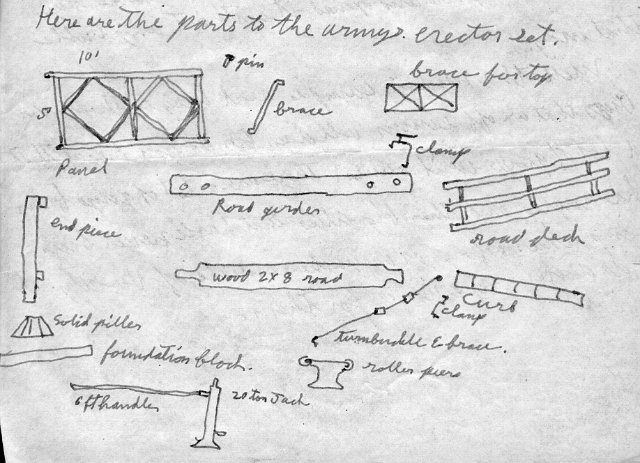 Here are the parts to the army's erector set.
10'
pin
brace for top
brace
5
Panel
clamp
Road girder
end piece
road deck
wood 2x8 road
curb
clamp
solid piller
turnbuckle & brace.
foundation block.
roller piers
6 ft handles
20 ton Jack